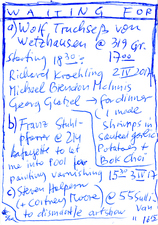 WAITING FOR
a) Wolf, Truchseß von
Wetzhausen @ 319 Gr.
starting 18:30 17:00
Richard Kroehling 2 IV 2017
Michael Brendon McInnis
Georg Gratzel → for dinner
I made
b) Franz Stuhl-
pfarrer @ 214
Lafayette to let
me into Pool for
painting varnishing
shrimps in
sauted garlic
Potatoes +
Bok Choi
15:30 3 IV 17
c) Steven Holperin
(+ Cortney Moore) @ 55 Sulli
van
to dismantle artshow